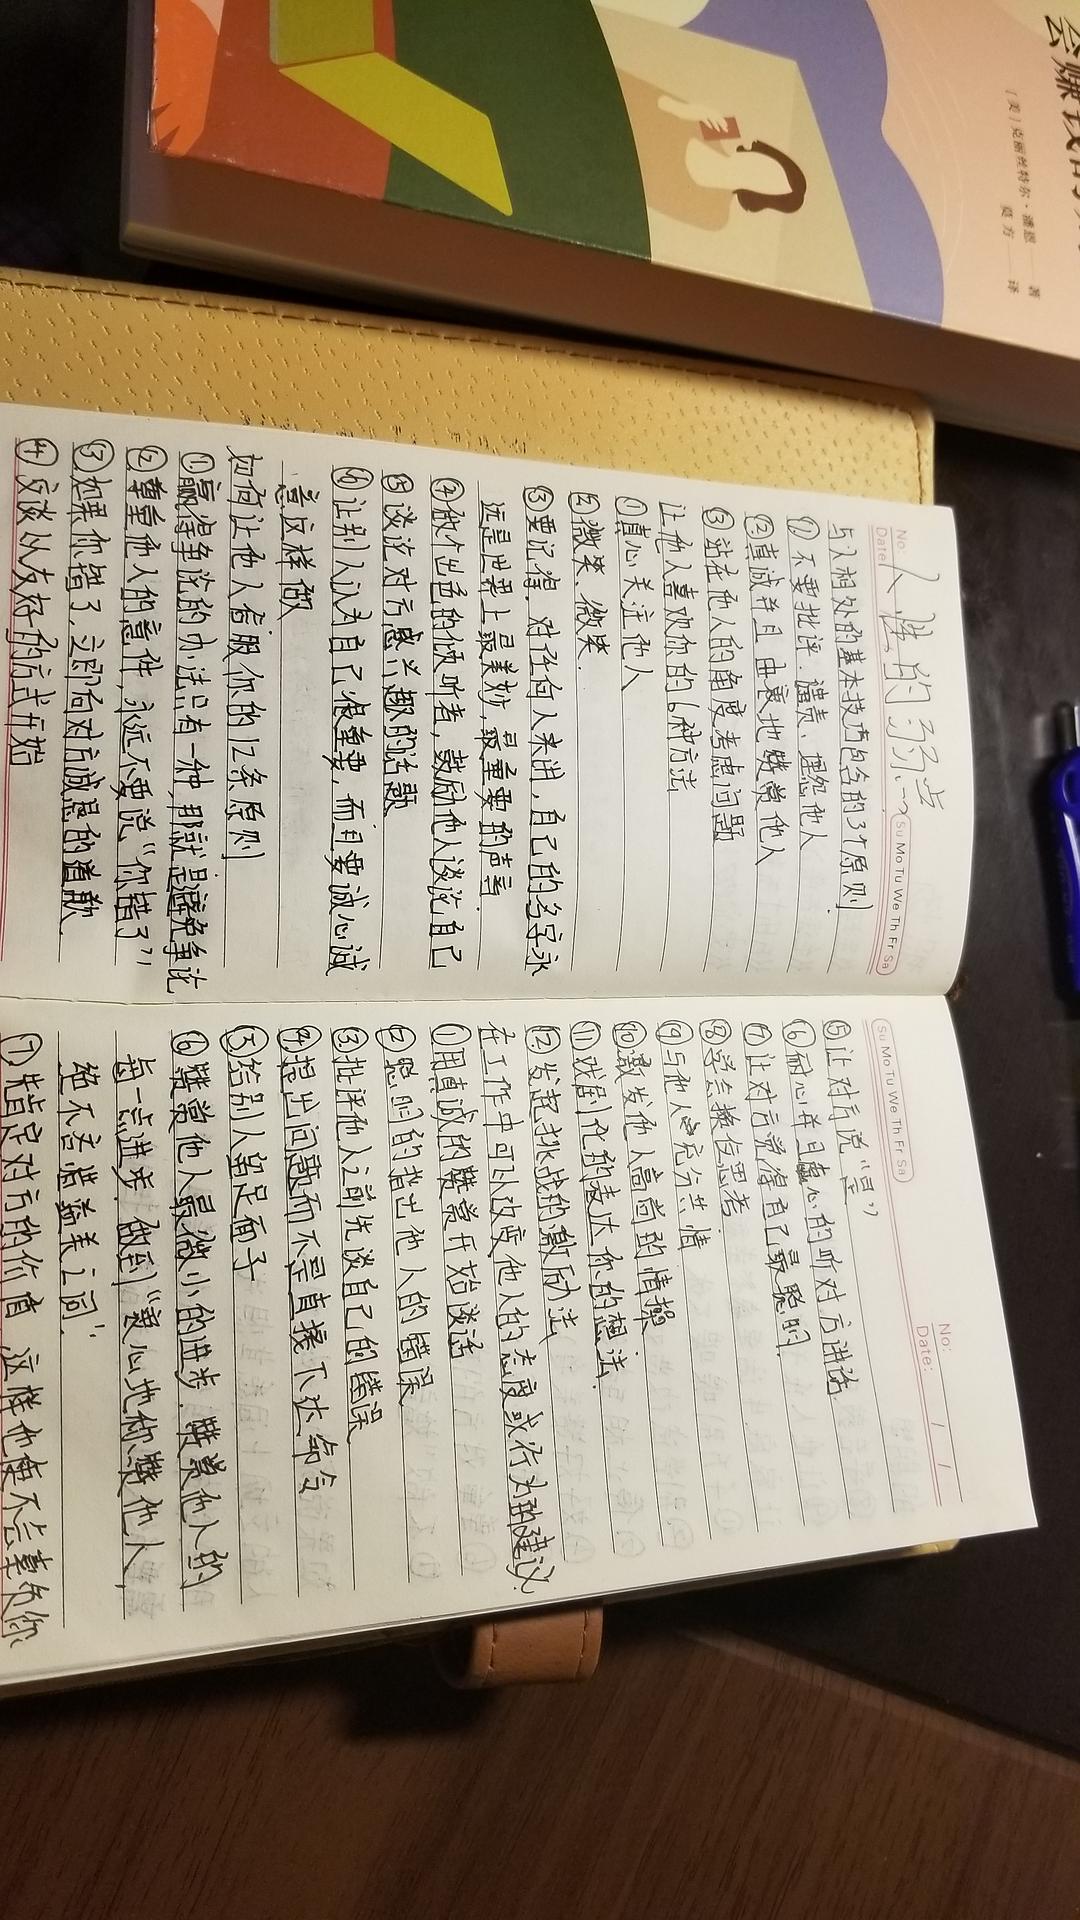 会赚钱的
[美]克丽丝特尔·潘恩 著
莫方 译
No:
Date:
Su Mo Tu We Th Fr Sa
人性的弱点
与人相处的基本技巧包含的3个原则
① 不要批评、谴责、埋怨他人
②真诚并且由衷地赞赏他人
③站在他人的角度考虑问题
让他人喜欢你的6种方法
①真心关注他人
②微笑、微笑.
③要记得,对任何人来讲,自己的名字永
远是世界上最美妙,最重要的声音
④做个出色的倾听者,鼓励他人谈论自己
⑤谈论对方感兴趣的话题
⑥让别人认为自己很重要,而且要诚心诚
意这样做
如何让他人信服你的12条原则
①赢得争论的办法只有一种,那就是避免争论
②尊重他人的意件,永远不要说“你错了”
③如果你错了,立即向对方诚恳的道歉.
④交谈以友好的方式开始
Su Mo Tu We Th Fr Sa
No:
Date: / /
⑤让对方说“是”
⑥耐心并且虚心的听对方讲话.
⑦让对方觉得自己最聪明.
⑧学会换位思考.
⑨与他人充分共情
⑩激发他人高尚的情操
⑪戏剧化的表达你的想法.
⑫发起挑战的激励法
在工作中可以改变他人的态度或行为的建议.
①用真诚的赞赏开始谈话
②聪明的指出他人的错误
③批评他人之前先谈自己的错误
④提出问题而不是直接下达命令
⑤给别人留足面子
⑥赞赏他人最微小的进步.赞赏他人的
每一点进步.做到“衷心地称赞他人,
绝不吝惜溢美之词”.
⑦肯定对方的价值 这样他便不会辜负你